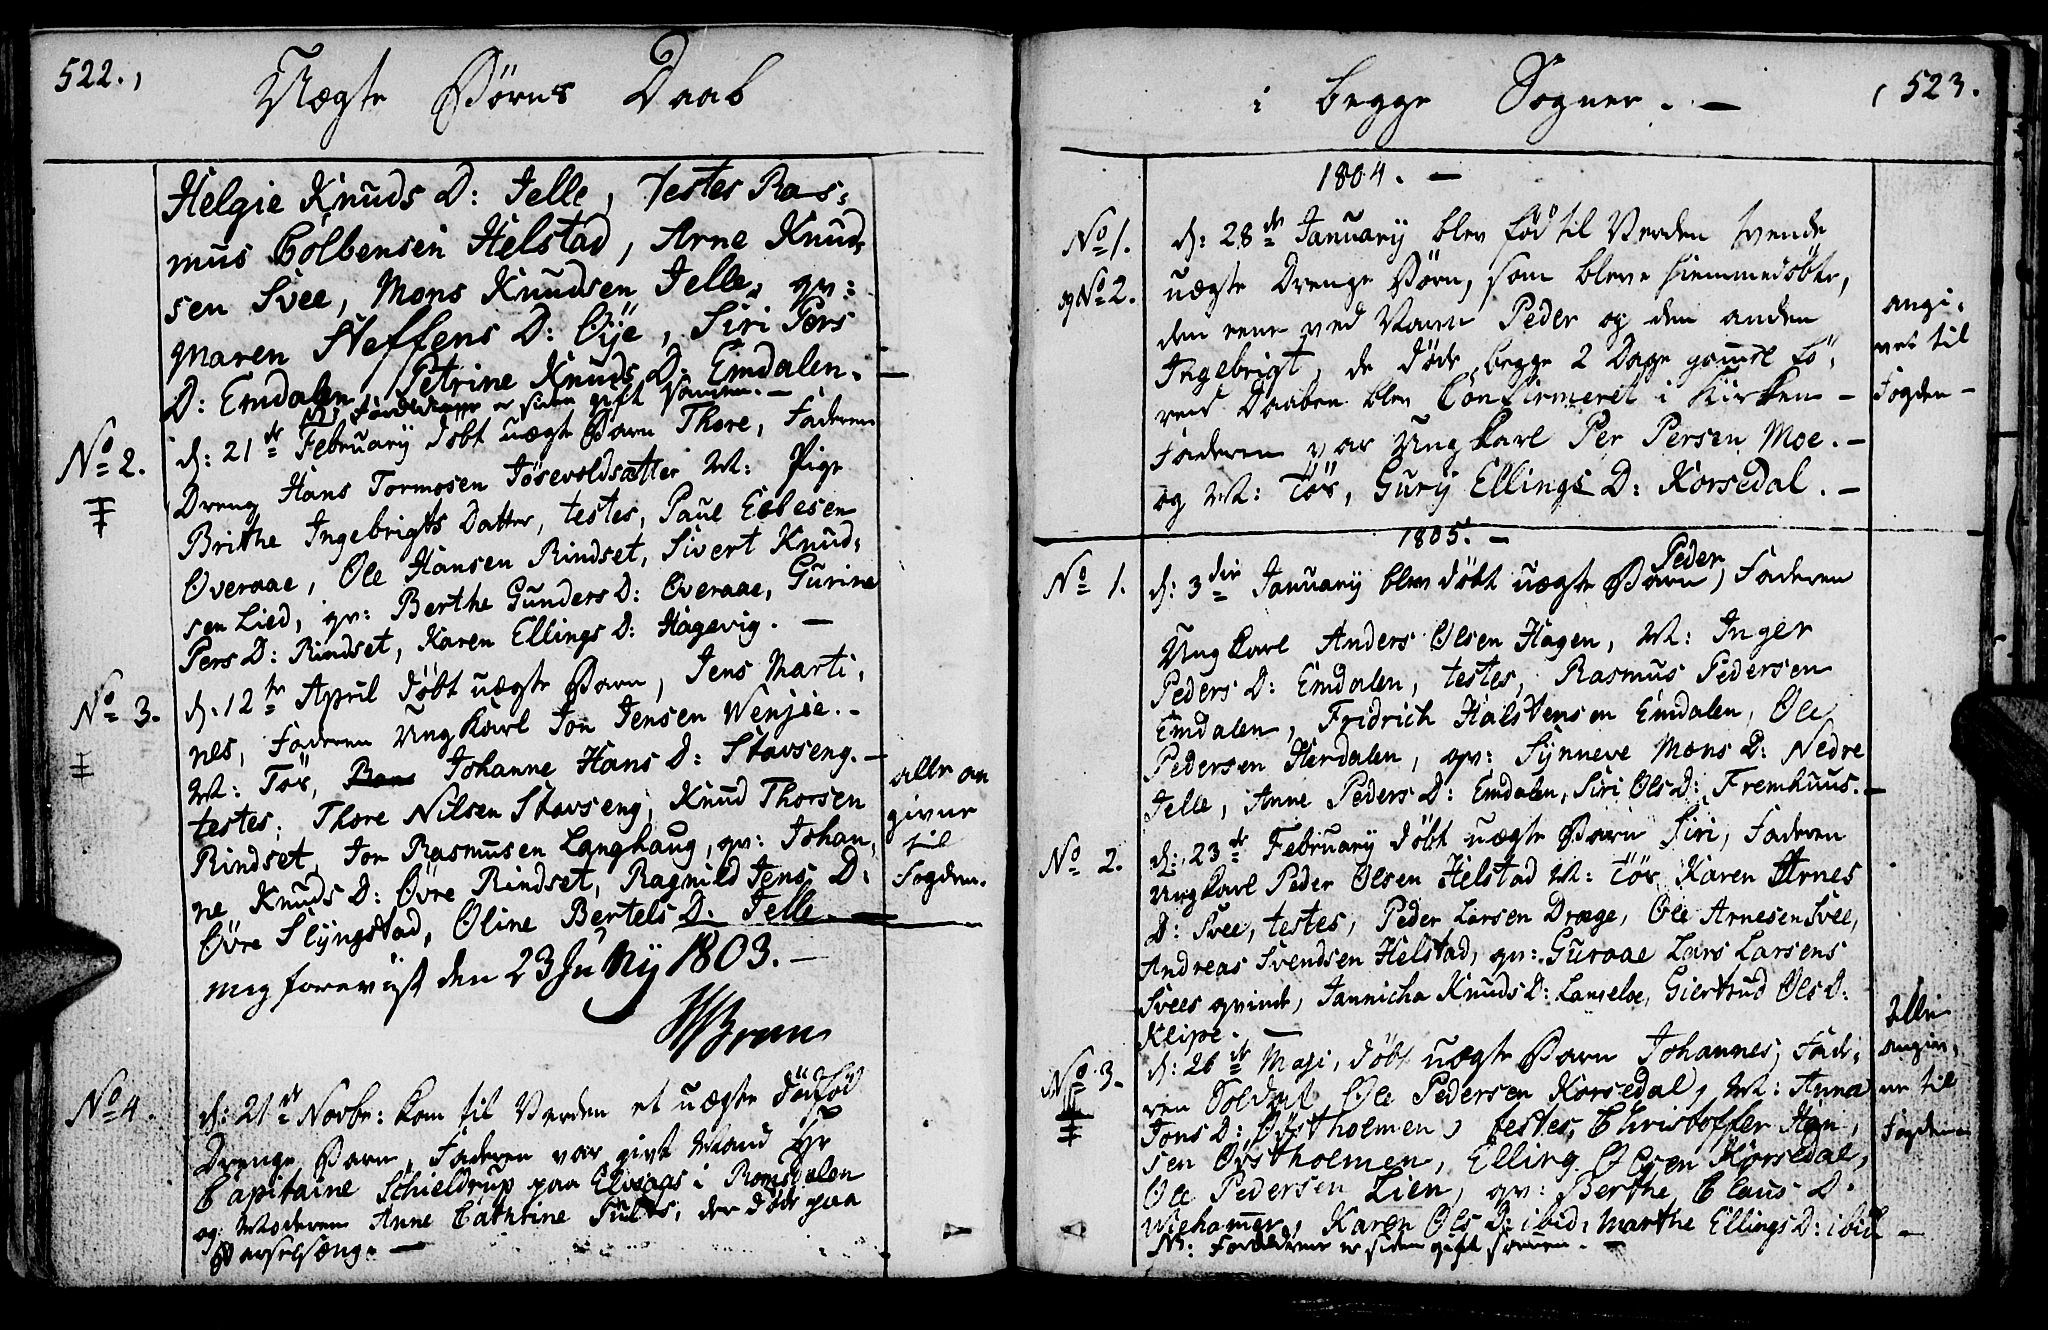 522.,
Uægte Børns Daab
Helgie Knuds D: Jelle, Testes Ras:
mus Colbensen Helstad, Arne Knud,
sen Svee, Mons Knudsen Jelle, qv:
maren Steffens D: Øye, Siri Pers
D: Emdalen, Petrine Knuds D: Emdalen.
NB: Forældrene er siden gift sammen. –
No 2.
d: 21de February døbt uægte Barn Thore, Faderen
Dreng Hans Tormosen Jösevoldsætter M: Pige
Brithe Ingebrigts Datter, testes, Paul Esbesen
Overaae, Ole Hansen Rindset, Sivert Knud,
sen Lied, qv: Berthe Gunders D: Overaae, Gurine
Pers D: Rindset, Karen Ellings D: Hagevig. –
No 3.
d: 12te April døbt uægte Barn, Jens Marti,
nes, Faderen Ungkarl Jon Jensen Wenjie. –
M: Tös, Johanne Hans D: Stavseng. –
testes: Thore Nilsen Stavseng, Knud Thorsen
Rindset, Jon Rasmusen Langhaug, qv: Johan,
ne Knuds D: Øvre Rindset, Ragnild Jens D:
Øvre Slyngstad, Oline Bertels D. Jelle. –
alle an
givne
til
Fogden.
mig forevist den 23 July 1803. –
No 4.
d: 21de Novbr: kom til Verden et uægte dödföd
Drenge Barn, Faderen var givt Mand Hr
Capitaine Schieldrup paa i Romsdalen
og Moderen Anne Cathrine, der døde paa
Barselsæng. –
i begge Sogner. –
, 523.
1804. –
No 1.
og No 2.
d: 28de January blev fød til Verden tvende
uægte Drenge Børn, som bleve hiemmedøbte,
den eene ved Navn Peder og den anden
Ingebrigt, de døde begge 2 Dage gamle fö,
rend Daaben blev Confirmeret i Kirken –
Faderen var Ungkarl Per Persen Moe. –
og M: Tös, Gury Ellings D: Korsedal. –
angi,
vet til
Fogden –
1805. –
No 1.
d: 3die January blev døbt uægte Barn Peder, Faderen
Ungkarl Anders Olsen Hagen, M: Inger
Peders D: Emdalen, testes, Rasmus Pedersen
Emdalen, Fridrich Halstensen Emdalen, Ole
Pedersen Herdalen, qv: Synneve Mons D: Nedre
Jelle, Anne Peders D: Emdalen, Siri Ols D: Fremhuus. –
No 2.
d: 23de February døbt uægte Barn Siri, Faderen
Ungkarl Peder Olsen Helstad M: Tös Karen Arnes
D: Svee, testes, Peder Larsen Drage, Ole Arnesen Svee,
Andreas Svendsen Helstad, qv: Guraae Lars Larsens
Svees qvinde, Jannicha Knuds D: Lanseloe, Giertrud Ols D:
Klipe. –
No 3.
d: 26de Maji, døbt uægte Barn Johannes, Fade,
ren Soldat Ole Pedersen Korsedal, M: Anna
Jons D: Østholmen, testes, Christoffer Han,
sen Østholmen, Elling Olsen Korsedal,
Ole Pedersen Lien, qv: Berthe Claus D:
Wiehammer, Karen Ols D: ibid: Marthe Ellings D: ibid –
NB: Forældrene er siden gift sammen. –
Alle
angiv,
ne til
Fogden